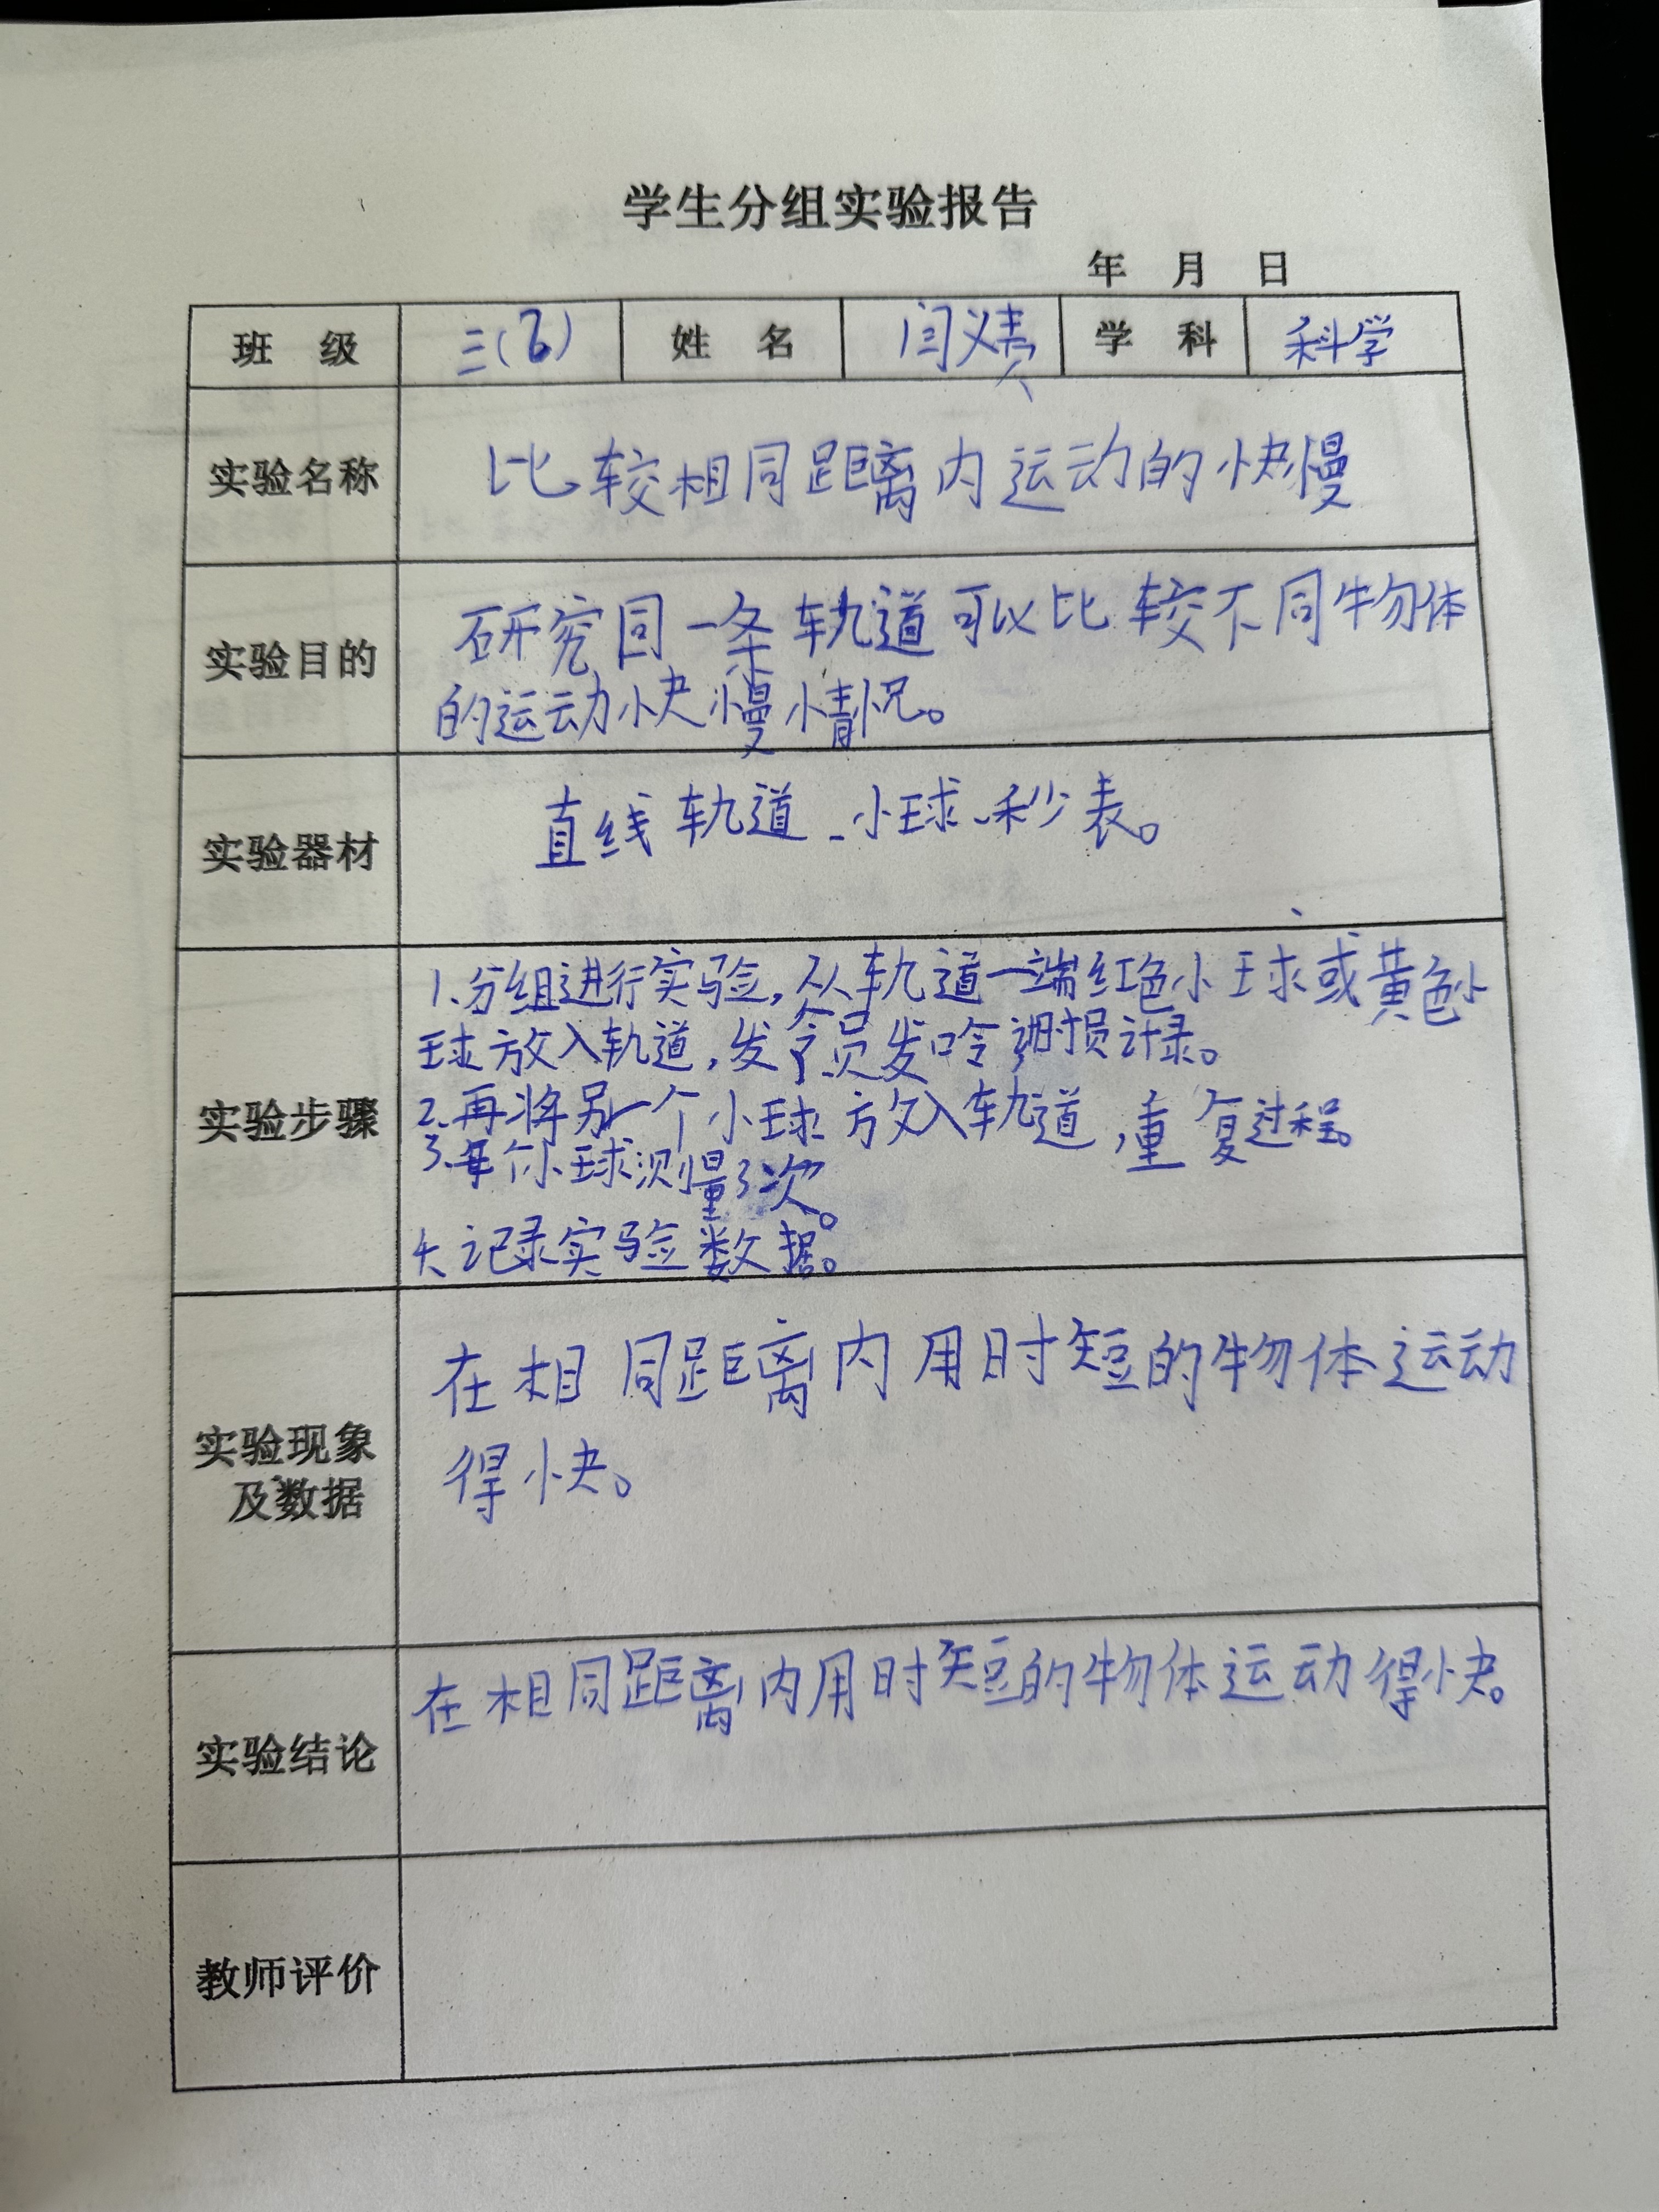 学生分组实验报告
年 月 日
班 级 三(6) 姓 名 闫义 学 科 科学
实验名称 比较相同距离内运动的快慢
实验目的 研究同一条轨道可以比较不同物体
的运动快慢情况。
实验器材 直线轨道、小球、秒表。
1.分组进行实验,从轨道一端红色小球或黄色小
球放入轨道,发令员发呤 计录。
实验步骤 2.再将另一个小球放入轨道,重复过程。
3.每个小球测量3次。
4.记录实验数据。
在相同距离内用时短的物体运动
实验现象
及数据 得快。
在相同距离内用时短的物体运动得快。
实验结论
教师评价